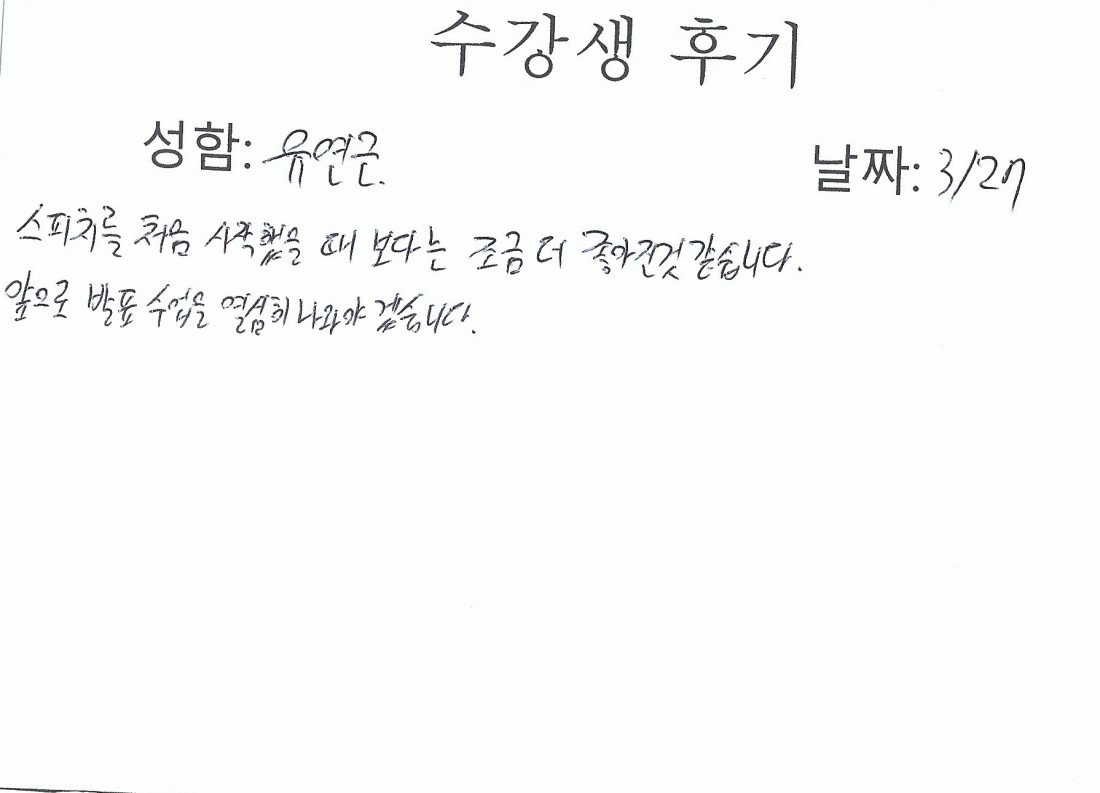 수강생 후기
성함: 유연근.
날짜: 3/27
스피치를 처음 시작했을 때 보다는 조금 더 좋아진것 같습니다.
앞으로 발표 수업을 열심히 나와야 겠습니다.